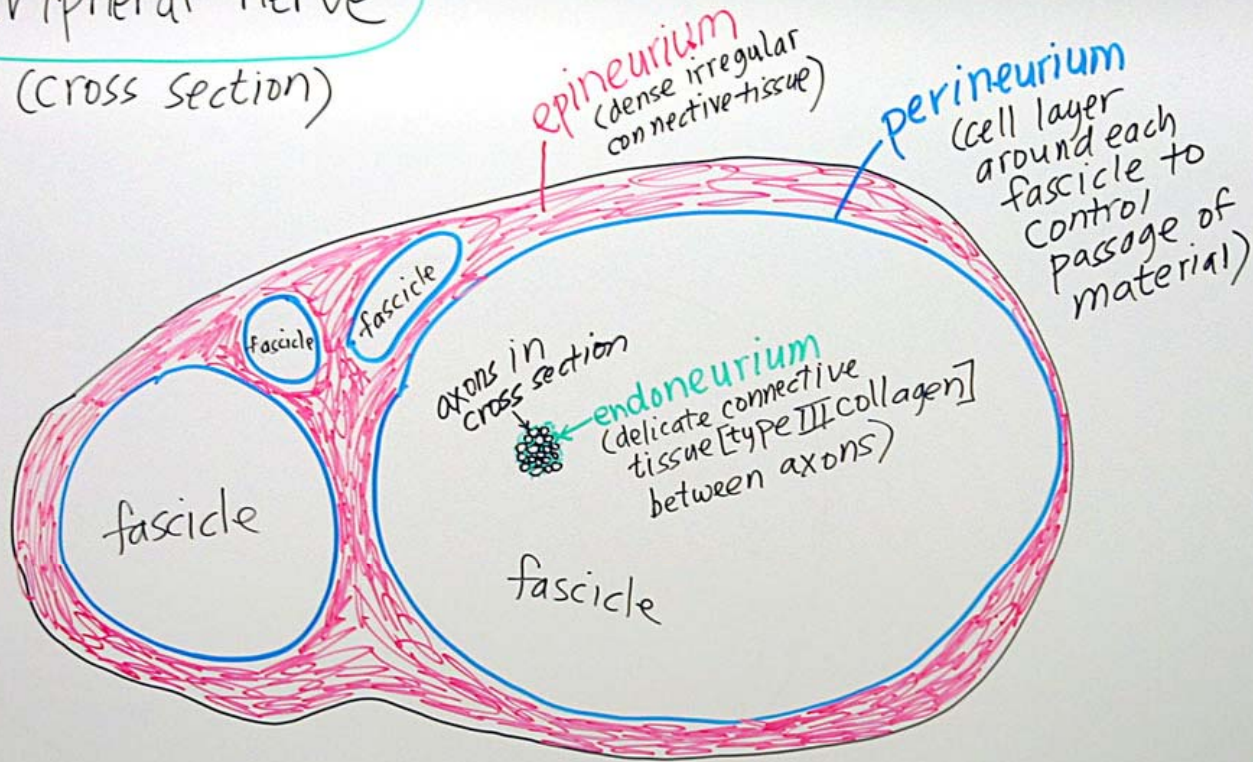 ripheral nerve
(cross section)
epineurium
(dense irregular
connective tissue)
perineurium
(cell layer
around each
fascicle to
control
passage of
material)
fascicle
fascicle
axons in
cross section
endoneurium
(delicate connective
tissue [type III collagen]
between axons)
fascicle
fascicle